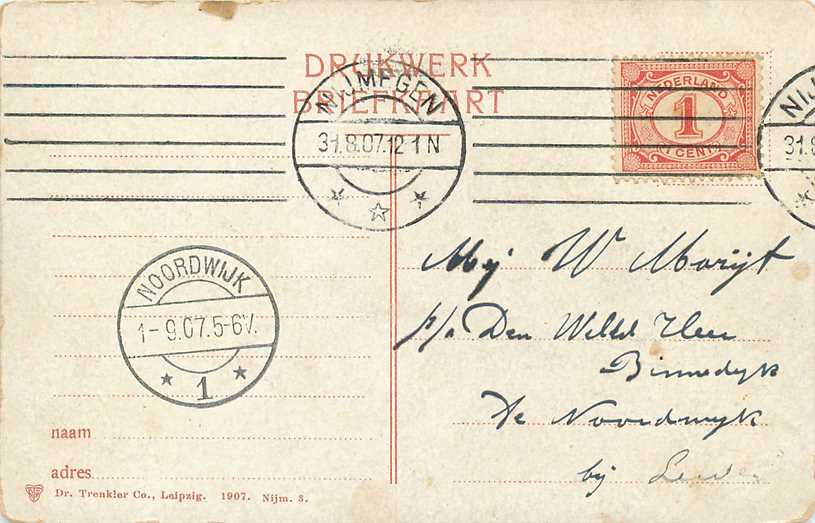 DRUKWERK
BRIEFKAART
NIJMEGEN
31.8.07.12 1 N
NEDERLAND
1
1 CENT
NIJ
31.8
Mej W
p/a Den Weled Heer
Binnedijk
Te Noordwijk
bij Leiden
NOORDWIJK
1-9.07.5-6V.
1
naam
adres
Dr. Trenkler Co., Leipzig. 1907. Nijm. 3.